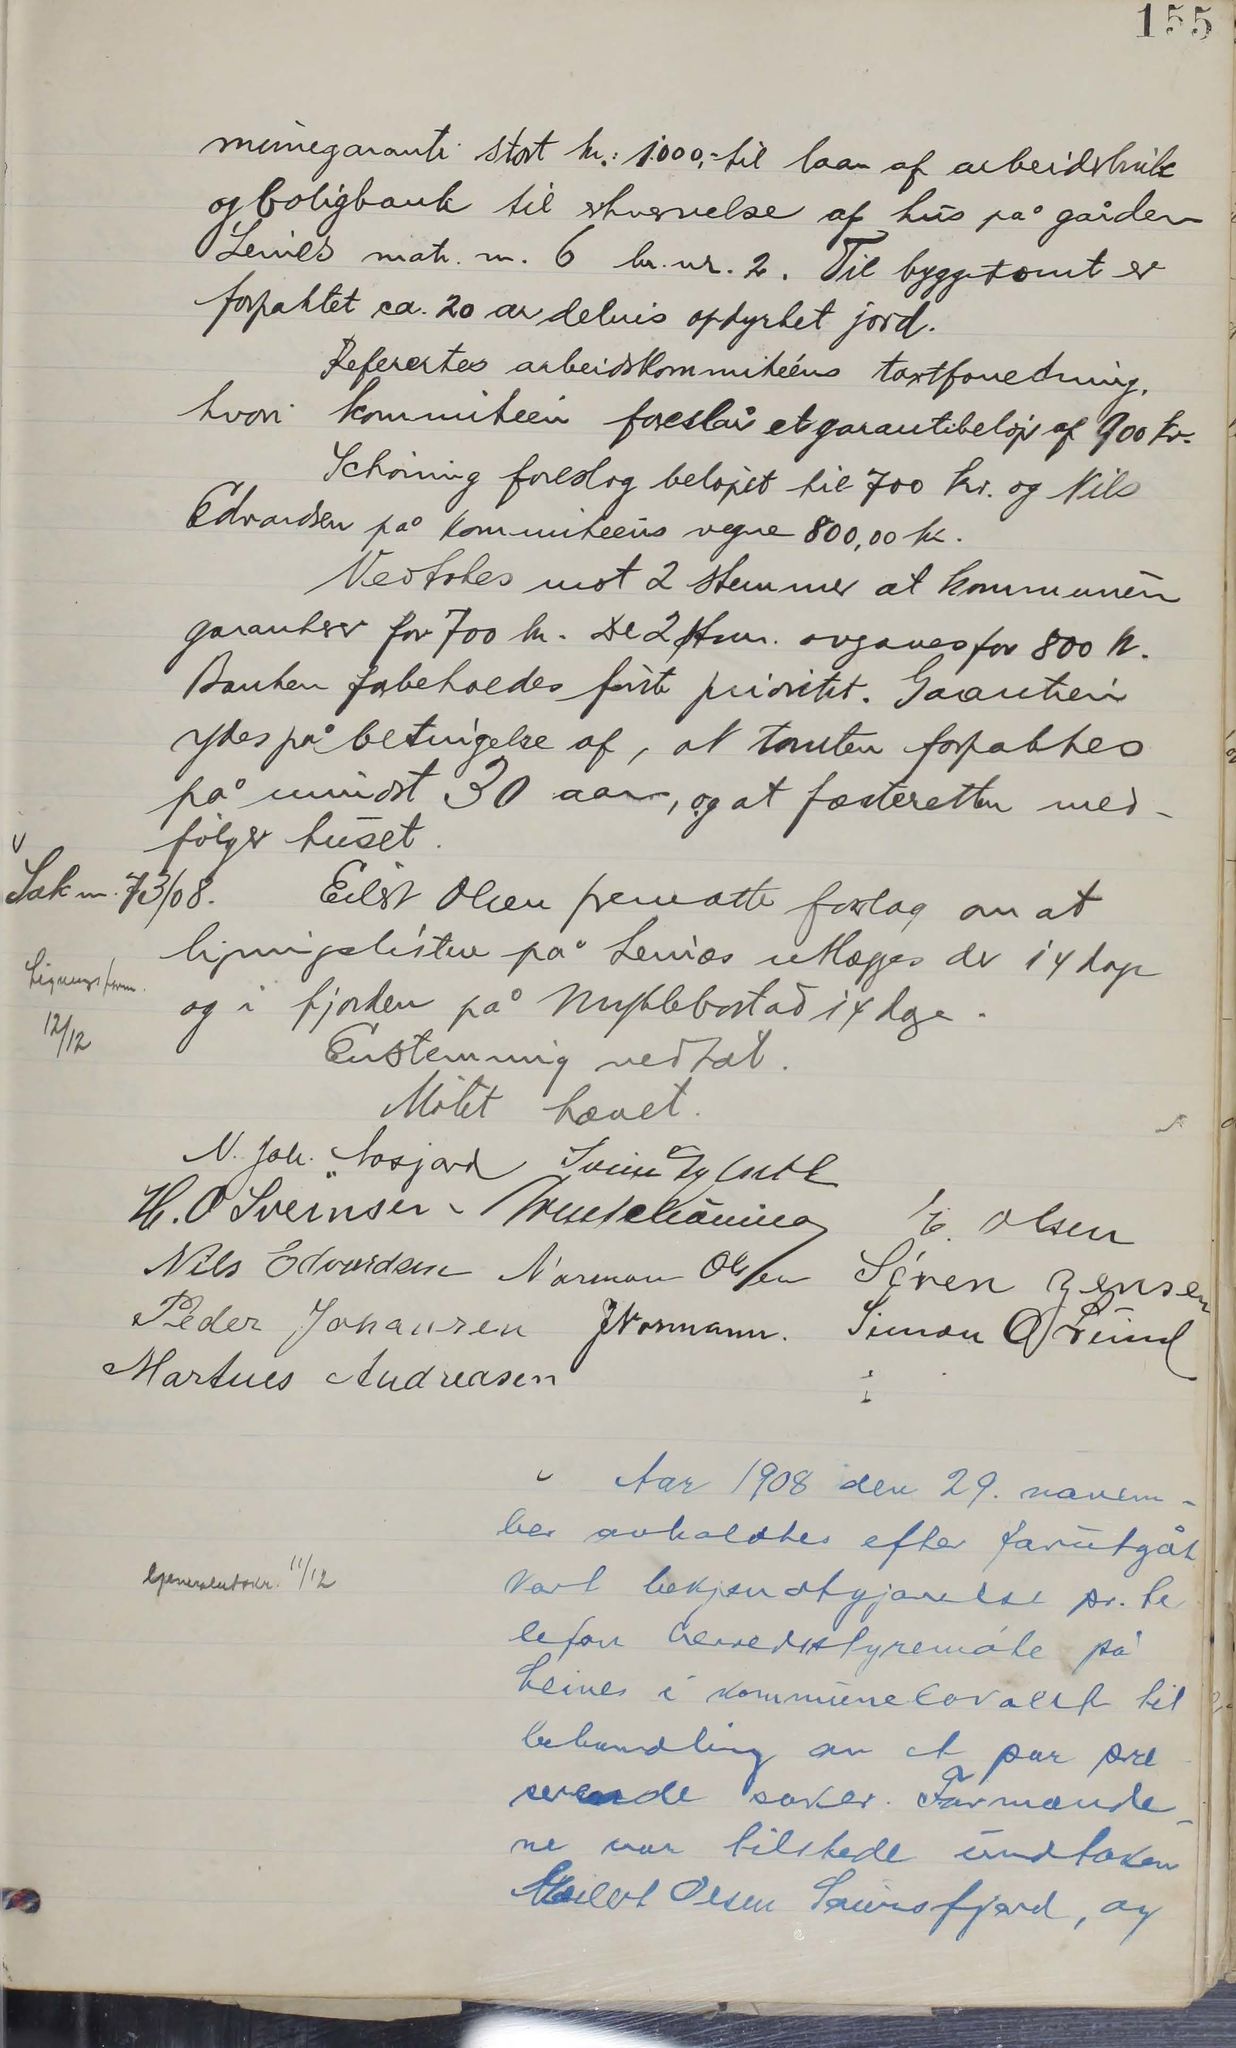 155
munegaranti stort kr.: 1000,- til laan af arbeidsbruk
og boligbank til erhvervelse af hus på gården
Leines matr. nr. 6 br. nr. 2. Til byggetomt er
forpaktet ca. 20 ar delvis opdyrket jord.
Referertes arbeidskommiteéns taxtforretning,
hvori kommiteén foreslår et garantibeløp af 900 kr.
Schøning foreslog beløpet til 700 kr. og Nils
Edvardsen på kommiteéns vegne 800,00 kr.
Vedtokes mot 2 stemmer at kommunen
garanterer for 700 kr. De 2 stem. avgaves for 800 kr.
Banken forbeholdes første prioritet. Garantien
ydes på betingelse af, at tomten forpaktes
på mindst 30 aar, og at festeretten med-
følger huset.
Sak nr. 73/08. Eilert Olsen fremsatte forslag om at
ligningslisten på Leines utlægges der 14 dage
Ligningsform.
og i fjorden på Myklebostad 14 dage.
12/12
Enstemmig vedtat.
Møtet hævet.
N. Joh. Nosjord
H. O Sveinsen E. Olsen
Nils Edvardsen Norman Olsen Søren Zensen
Peder Johansen J Normann. Simon O Lund
Martines Andreasen
Aar 1908 den 29. novem-
ber avholdtes efter forutgåt
Generalutskr. 11/12
kort bekjendtgjørelse pr. te
lefon herredsstyremøte på
Leines i kommunelokalet til
behandling av et par pre
serende saker. Formænde-
ne var tilstede undtaken
Eilert Olsen Leinesfjord, og